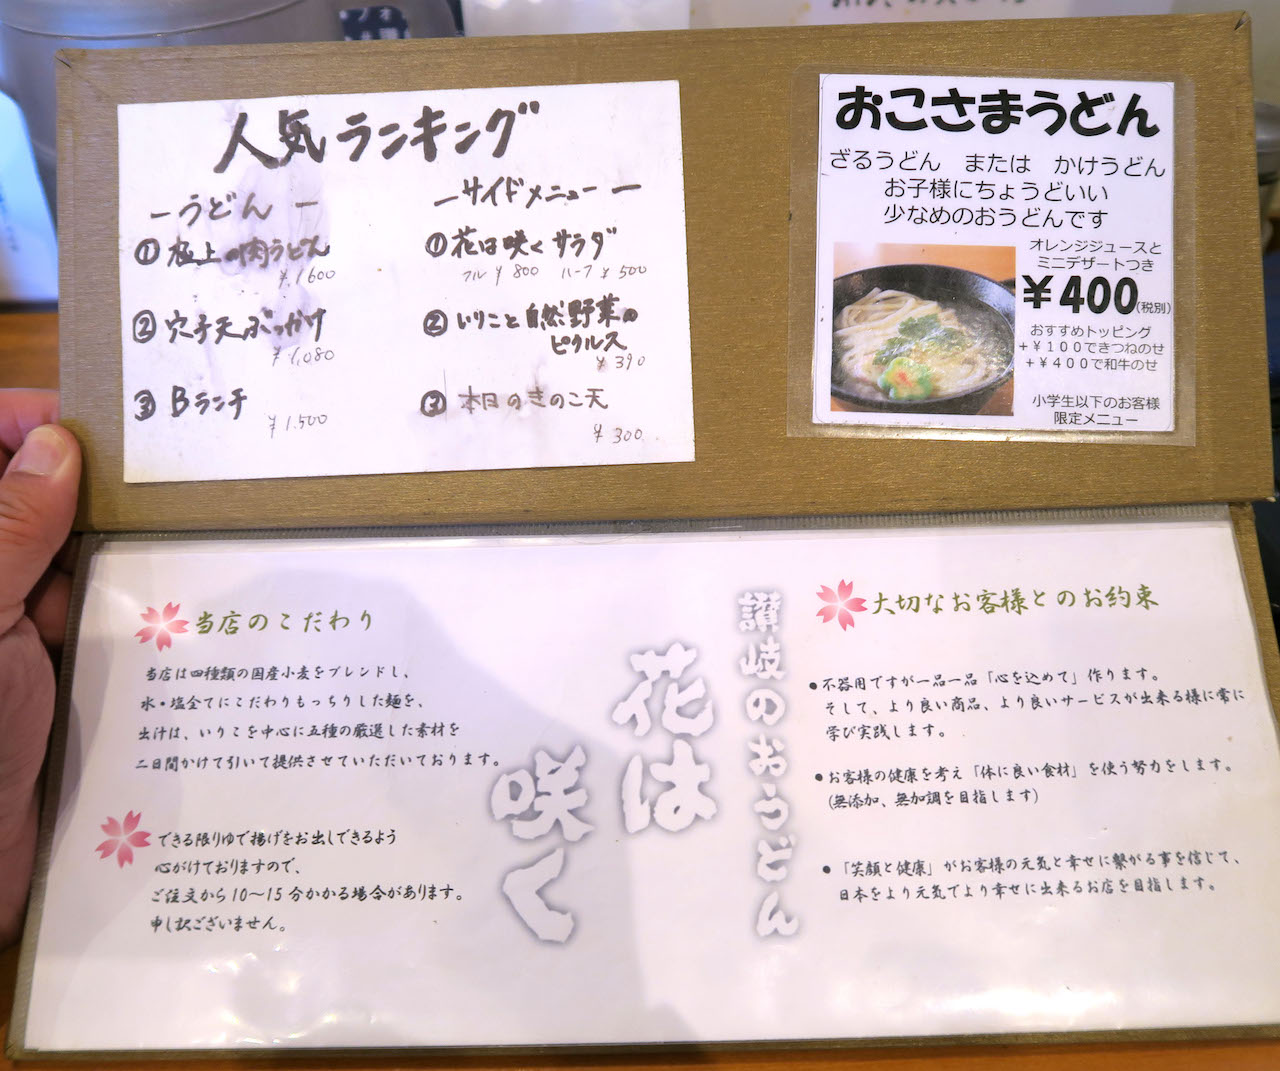 人気ランキング
ーうどんー
① 極上の肉うどん
¥1,600
② 穴子天ぶっかけ
¥1,080
③ Bランチ
¥1,500
ーサイドメニューー
① 花は咲くサラダ
フル¥800 ハーフ¥500
② いりこと自然野菜の
ピクルス
¥390
③ 本日のきのこ天
¥300
おこさまうどん
ざるうどん または かけうどん
お子様にちょうどいい
少なめのおうどんです
オレンジジュースと
ミニデザートつき
¥400(税別)
おすすめトッピング
+¥100できつねのせ
+¥400で和牛のせ
小学生以下のお客様
限定メニュー
当店のこだわり
当店は四種類の国産小麦をブレンドし、
水・塩全てにこだわりもっちりした麺を、
出汁は、いりこを中心に五種の厳選した素材を
二日間かけて引いて提供させていただいております。
できる限りゆで揚げをお出しできるよう
心がけておりますので、
ご注文から10〜15分かかる場合があります。
申し訳ございません。
讃岐のおうどん
花は
咲く
大切なお客様とのお約束
●不器用ですが一品一品「心を込めて」作ります。
そして、より良い商品、より良いサービスが出来る様に常に
学び実践します。
●お客様の健康を考え「体に良い食材」を使う努力をします。
(無添加、無加調を目指します)
●「笑顔と健康」がお客様の元気と幸せに繋がる事を信じて、
日本をより元気でより幸せに出来るお店を目指します。